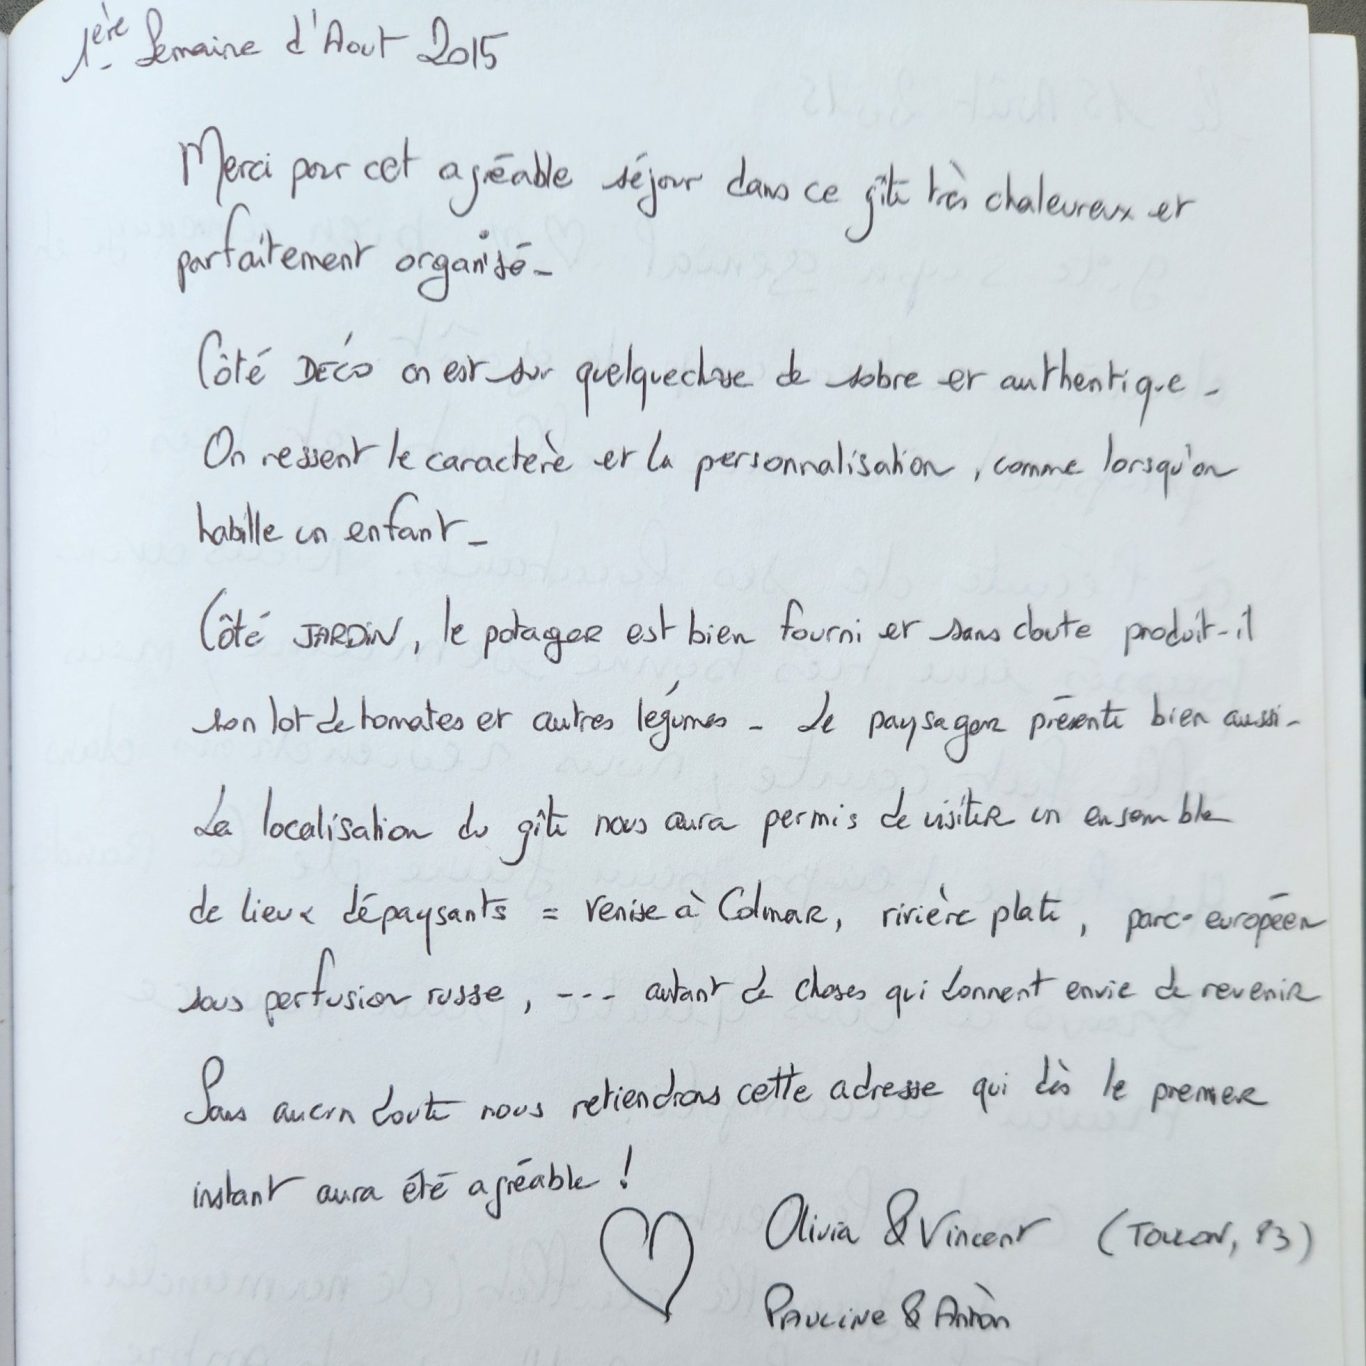 1ère Semaine d'Aout 2015
Merci pour cet agréable séjour dans ce gîte très chaleureux et
parfaitement organisé -
Côté DÉCO on est sur quelquechose de sobre et authentique -
On ressent le caractère et la personnalisation, comme lorsqu'on
habille un enfant -
Côté JARDIN, le potager est bien fourni et sans doute produit-il
son lot de tomates et autres légumes - Le paysager présente bien aussi -
La localisation du gîte nous aura permis de visiter un ensemble
de lieux dépaysants = Venise à Colmar, rivière plate, parc-européen
sous perfusion russe, --- autant de choses qui donnent envie de revenir
Sans aucun doute nous retiendrons cette adresse qui dès le premier
instant aura été agréable !
Olivia & Vincent (TOULON, 83)
PAULINE &